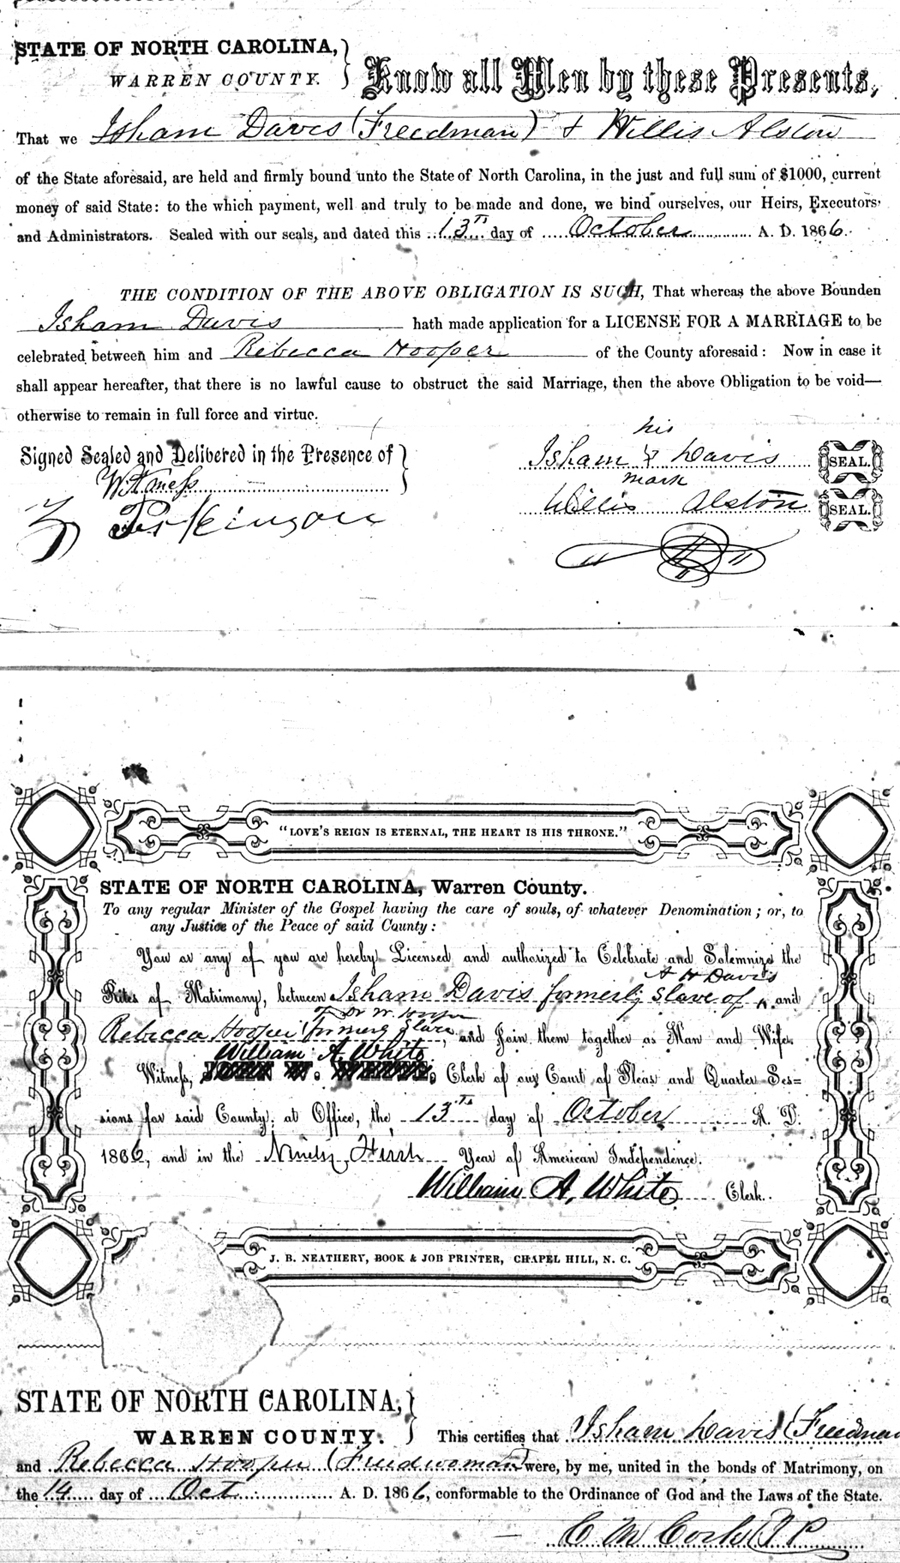 STATE OF NORTH CAROLINA,
WARREN COUNTY.
Know all Men by these Presents,
That we Isham Davis (Freedman) & Willis Alston
of the State aforesaid, are held and firmly bound unto the State of North Carolina, in the just and full sum of $1000, current
money of said State: to the which payment, well and truly to be made and done, we bind ourselves, our Heirs, Executors,
and Administrators. Sealed with our seals, and dated this 13th day of October A. D. 1866.
THE CONDITION OF THE ABOVE OBLIGATION IS SUCH, That whereas the above Bounden
Isham Davis hath made application for a LICENSE FOR A MARRIAGE to be
celebrated between him and Rebecca Hooper of the County aforesaid: Now in case it
shall appear hereafter, that there is no lawful cause to obstruct the said Marriage, then the above Obligation to be void—
otherwise to remain in full force and virtue.
his
Signed Sealed and Delivered in the Presence of
Isham X Davis SEAL.
Witness
mark
Willis Alston SEAL.
Perkinson
"LOVE'S REIGN IS ETERNAL, THE HEART IS HIS THRONE."
STATE OF NORTH CAROLINA, Warren County.
To any regular Minister of the Gospel having the care of souls, of whatever Denomination; or, to
any Justice of the Peace of said County:
You or any of you are hereby Licensed and authorized to Celebrate and Solemnize the
A H Davis
Rites of Matrimony, between Isham Davis formerly slave of ^ and
of Dr W Hooper
Rebecca Hooper formerly slave, and Join them together as Man and Wife.
William A White
Witness, Clerk of our Court of Pleas and Quarter Ses=
sions for said County, at Office, the 13th day of October A. D.
1866, and in the Ninety First Year of American Independence.
William A. White Clerk.
J. B. NEATHERY, BOOK & JOB PRINTER, CHAPEL HILL, N. C.
STATE OF NORTH CAROLINA,
WARREN COUNTY.
This certifies that Isham Davis (Freedman
and Rebecca Hooper (Freedwoman) were, by me, united in the bonds of Matrimony, on
the 14 day of Oct A. D. 1866, conformable to the Ordinance of God and the Laws of the State.
C M Cook J P